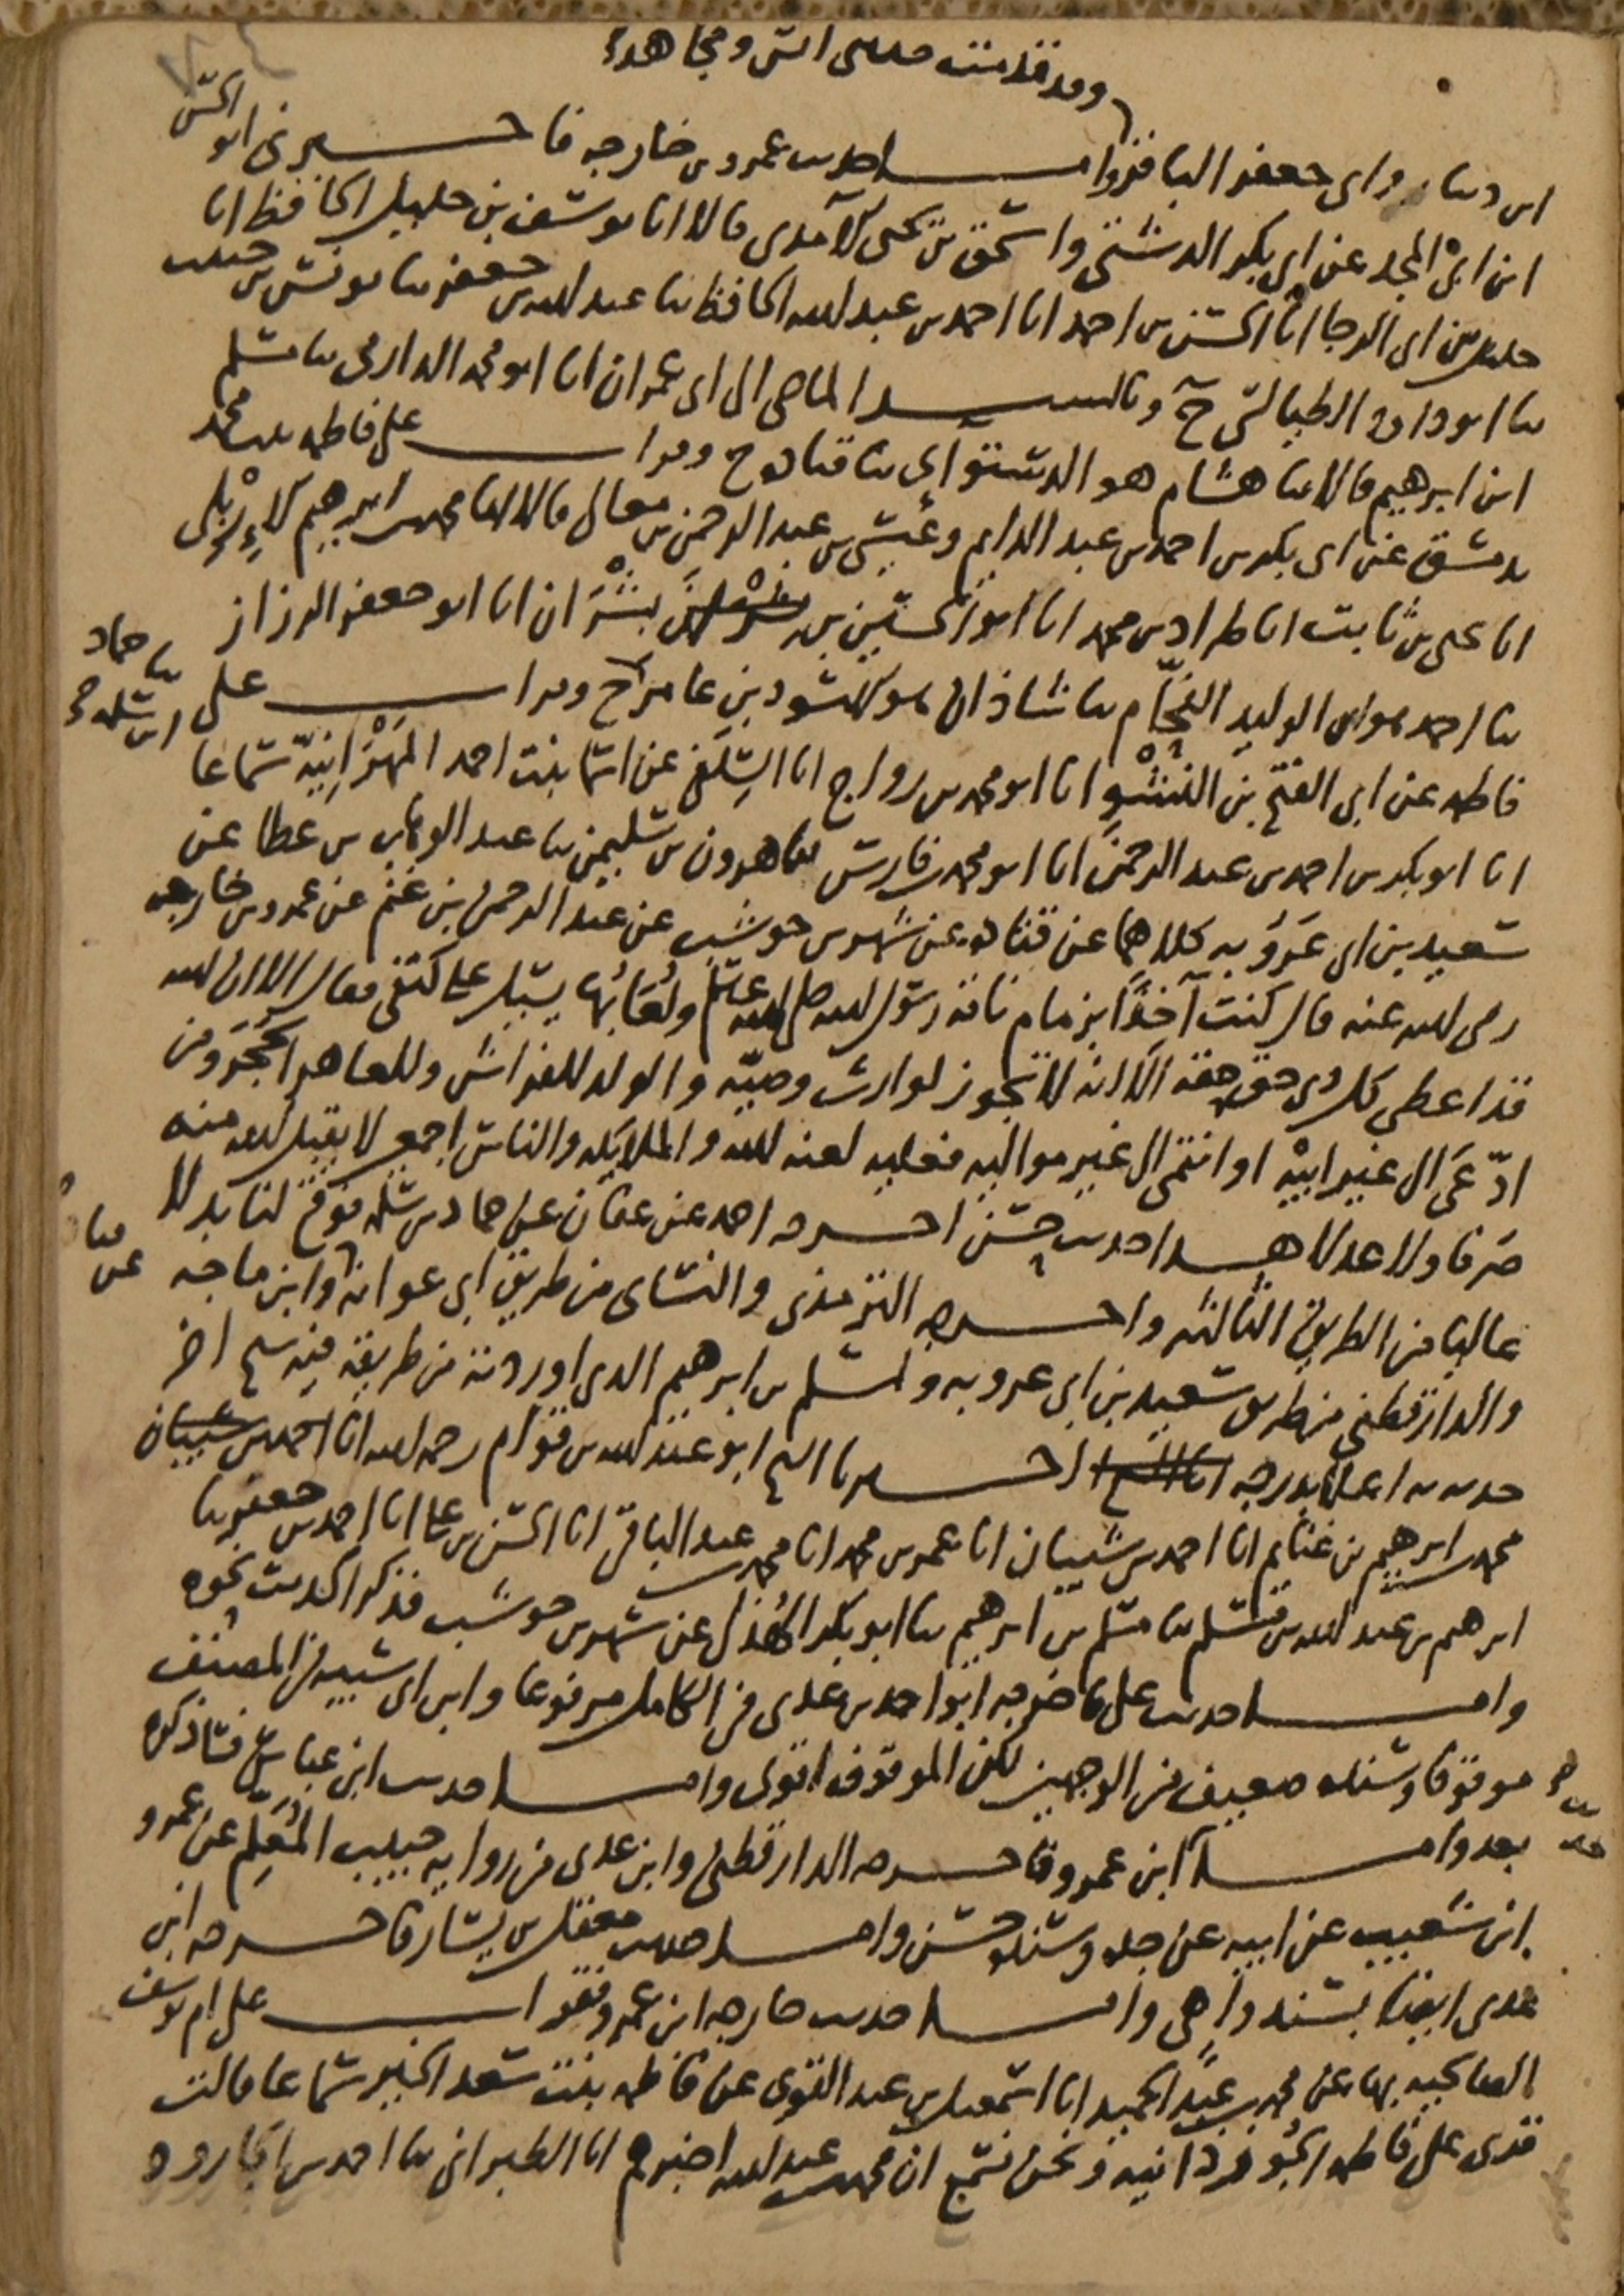 وقد قدمت حديثي انس ومجاهد
ابن دينار وابي جعفر الباقر واما حديث عمرو بن خارجه فاخبرني ابو الحسن
ابن ابي المجد عن ابي بكر الدشتي واسحق بن يحيى الآمدي قالا انا يوسف بن خليل الحافظ انا
خليل بن ابي الرجا انا الحسن بن احمد انا احمد بن عبد الله الحافظ ثنا عبد الله بن جعفر ثنا يونس بن حبيب
ثنا ابو داود الطيالسي ح وبالسند الماضي الى ابي عمران انا ابو محمد الدارمي ثنا مسلم
ابن ابرهيم قالا ثنا هشام هو الدستوائي ثنا قتاده ح وقرات على فاطمه بنت محمد
بدمشق عن ابي بكر بن احمد بن عبد الدايم وعيسى بن عبد الرحمن بن معالي قالا انا محمد بن ابرهيم الاربلي
انا يحيى بن ثابت انا طراد بن محمد انا ابو الحسين بن بشران انا ابو جعفر الرزاز
ثنا احمد هو ابن الوليد الفحام ثنا شاذان هو الاسود بن عامر ثنا حماد بن سلمه ح وقرات على
فاطمه عن ابي الفتح بن النشو انا ابو محمد بن رواج انا السلفي عن اسما بنت احمد المهرانيه سماعا
انا ابو بكر بن احمد بن عبد الرحمن انا ابو محمد بن فارس ثنا هرون بن سليمن ثنا عبد الوهاب بن عطا عن
سعيد بن ابي عروبه كلاهما عن قتاده عن شهر بن حوشب عن عبد الرحمن بن غنم عن عمرو بن خارجه
رضي الله عنه قال كنت آخذا بزمام ناقه رسول الله صلى الله عليه وسلم ولعابها يسيل على كتفي فقال الا ان الله
قد اعطى كل ذي حق حقه الا انه لا تجوز لوارث وصيه والولد للفراش وللعاهر الحجر ومن
ادعى الى غير ابيه او انتمى الى غير مواليه فعليه لعنه الله والملايكه والناس اجمعين لا يقبل الله منه
صرفا ولا عدلا هذا حديث حسن اخرجه احمد عن عفان عن حماد بن سلمه فوقع لنا بدلا
عاليا من الطريق الثالثه واخرجه الترمذي والنسائي من طريق ابي عوانه وابن ماجه
والدارقطني من طريق سعيد بن ابي عروبه ولمسلم بن ابرهيم الذي اوردته من طريقه فيه شيخ اخر
حدث به اعلى بدرجه اخبرنا الشيخ ابو عبد الله بن قوام رحمه الله انا
محمد بن ابرهيم بن غنايم انا احمد بن شيبان انا عمر بن محمد انا محمد بن عبد الباقي انا الحسن بن علي انا احمد بن جعفر ثنا
ابرهيم بن عبد الله بن مسلم ثنا مسلم بن ابرهيم ثنا ابو بكر الهذلي عن شهر بن حوشب فذكر الحديث نحوه
واما حديث علي فاخرجه ابو احمد بن عدي في الكامل مرفوعا وابن ابي شيبه في المصنف
موقوفا وسنده ضعيف من الوجهين لكن الموقوف اقوى واما حديث ابن عباس فساذكره
بعد واما ابن عمرو فاخرجه الدارقطني وابن عدي من روايه حبيب المعلم عن عمرو
ابن شعيب عن ابيه عن جده وسنده حسن واما حديث معقل بن يسار فاخرجه ابن
عدي ايضا بسند واهي واما حديث خارجه ابن عمرو فقرات على ام يوسف
الصالحيه بها عن محمد بن عبد الحميد انا اسمعيل بن عبد القوي عن فاطمه بنت سعد الخير سماعا قالت
قري على فاطمه الجوزدانيه ونحن نسمع ان محمد بن عبد الله اخبرهم انا الطبراني ثنا احمد بن الجارود